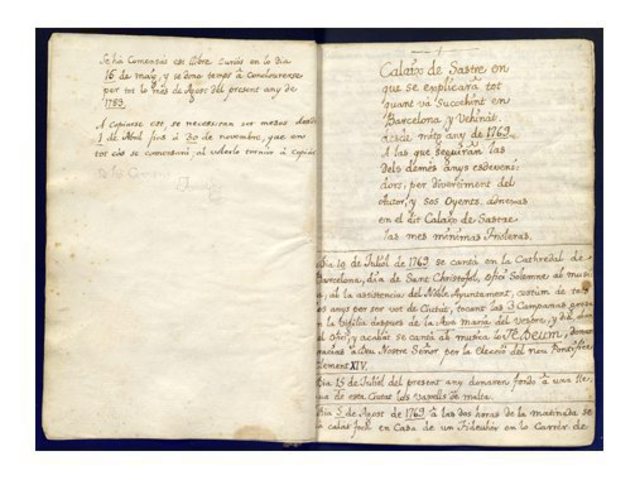 Se ha Comensàs est llibre Curiòs en lo dia
16 de maig, y se dona temps à Conclourerse
per tot lo mes de Agost del present any de
1783.
A Copiarse est, se necessitan ser mesos desde
1 de Abril fins à 30 de novembre, que en
tot càs se comensarà, al voler lo tornar à Copiar
Calaix de Sastre en
que se explicarà tot
quant va Succehint en
Barcelona y Vehinat
desde mitg any de 1769.
A las que seguiràn las
dels demès anys esdeveni-
dors, per divertiment del
Autor, y sos Oyents, adnexas
en el dit Calaix de Sastre
las mes minimas frioleras.
Dia 10 de Juliòl de 1769 se cantà en la Cathredal de
Barcelona, dia de Sant Christofol, Ofici Solemne ab musi
ab la assistencia del Noble Ajuntament, costum de tots
os anys per ser vot de Ciutat, tocant las 3 Campanas grossa
en la Vigilia despues de la Ave maria del Vespre, y dit dia
al Ofici, y acabàt se cantà ab musica lo Te Deum, donant
gracias à Deu Nostre Señor per la elecciò del nou Pontifice
Clement XIV.
Dia 15 de Juliòl del present any donaren fondo à una lle-
ua de esta Ciutat los Vaxells de malta.
Dia 5 de Agost de 1769 à las dos horas de la matinada se
a calat foch en Casa de un Fideuhèr en lo Carrèr de